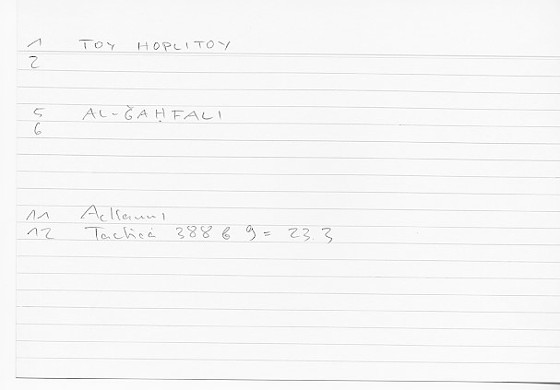 1 TOY HOPLITOY
2
5 AL-ǦAḤFALI
6
11
12 388 6 9 = 23.3